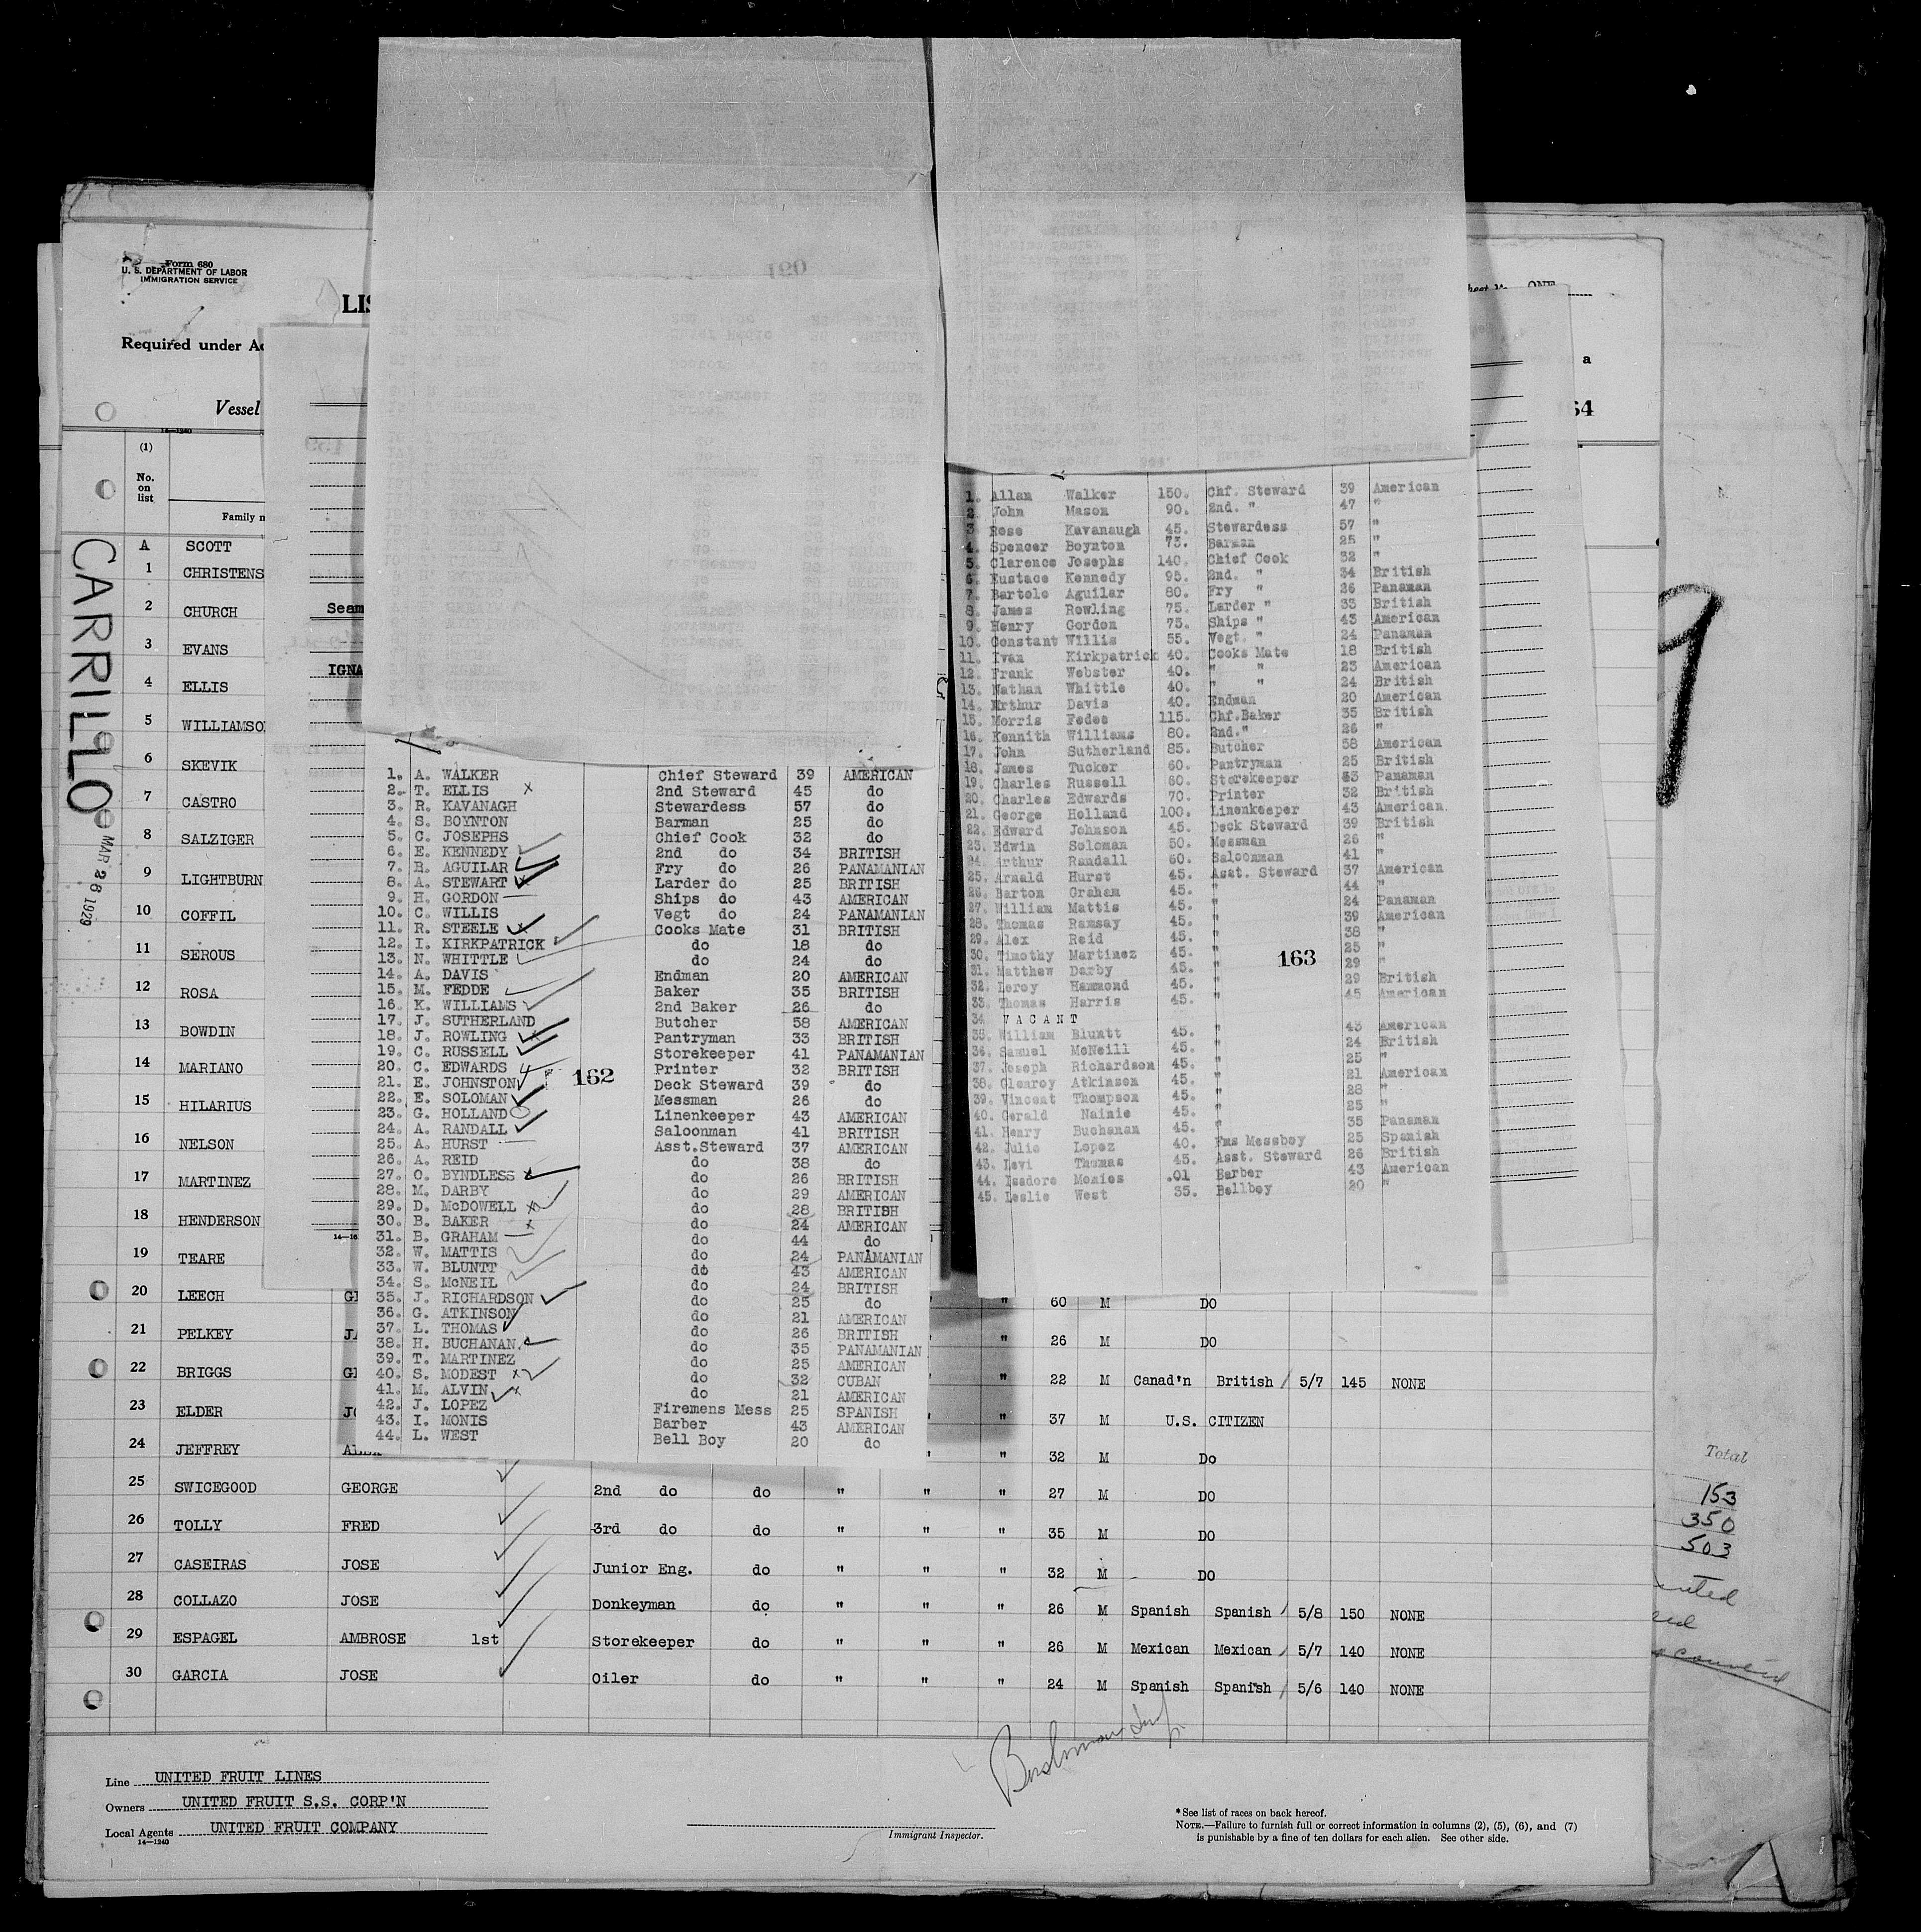 Form 680
U. S. DEPARTMENT OF LABOR
IMMIGRATION SERVICE
LIS
Required under Ac
Vessel
14—1240
(1)
No.
on
list
Family n
CARRILLO
MAR 26 1929
A SCOTT
1 CHRISTENS
2 CHURCH
3 EVANS
4 ELLIS
5 WILLIAMSO
6 SKEVIK
7 CASTRO
8 SALZIGER
9 LIGHTBURN
10 COFFIL
11 SEROUS
12 ROSA
13 BOWDIN
14 MARIANO
15 HILARIUS
16 NELSON
17 MARTINEZ
18 HENDERSON
19 TEARE
Seam
IGNA
190
1. A. WALKER Chief Steward 39 AMERICAN
2. T. ELLIS 2nd Steward 45 do
3. R. KAVANAGH Stewardess 57 do
4. S. BOYNTON Barman 25 do
5. C. JOSEPHS Chief Cook 32 do
6. E. KENNEDY 2nd do 34 BRITISH
7. B. AGUILAR Fry do 26 PANAMANIAN
8. A. STEWART Larder do 25 BRITISH
9. H. GORDON Ships do 43 AMERICAN
10. C. WILLIS Vegt do 24 PANAMANIAN
11. R. STEELE Cooks Mate 31 BRITISH
12. I. KIRKPATRICK do 18 do
13. N. WHITTLE do 24 do
14. A. DAVIS Endman 20 AMERICAN
15. M. FEDDE Baker 35 BRITISH
16. K. WILLIAMS 2nd Baker 26 do
17. J. SUTHERLAND Butcher 58 AMERICAN
18. J. ROWLING Pantryman 33 BRITISH
19. C. RUSSELL Storekeeper 41 PANAMANIAN
20. C. EDWARDS Printer 32 BRITISH
162
21. E. JOHNSTON Deck Steward 39 do
22. E. SOLOMAN Messman 26 do
23. G. HOLLAND Linenkeeper 43 AMERICAN
24. A. RANDALL Saloonman 41 BRITISH
25. A. HURST Asst.Steward 37 AMERICAN
26. A. REID do 38 do
27. C. BYNDLESS do 26 BRITISH
28. M. DARBY do 29 AMERICAN
29. D. McDOWELL do 28 BRITISH
30. B. BAKER do 24 AMERICAN
31. B. GRAHAM do 44 do
32. W. MATTIS do 24 PANAMANIAN
33. W. BLUNTT do 43 AMERICAN
34. S. McNEIL do 24 BRITISH
35. J. RICHARDSON do 25 do
36. G. ATKINSON do 21 AMERICAN
37. L. THOMAS do 26 BRITISH
38. H. BUCHANAN. do 35 PANAMANIAN
39. T. MARTINEZ do 25 AMERICAN
40. S. MODEST do 32 CUBAN
41. M. ALVIN do 21 AMERICAN
42. J. LOPEZ Firemens Mess 25 SPANISH
43. I. MONIS Barber 43 AMERICAN
44. L. WEST Bell Boy 20 do
1. Allan Walker 150. Chf. Steward 39 American
2. John Mason 90. 2nd. " 47 "
3. Rose Kavanaugh 45. Stewardess 57 "
4. Spencer Boynton 75. Barman 25 "
5. Clarence Josephs 140. Chief Cook 32 "
6. Eustace Kennedy 95. 2nd. " 34 British
7. Bartolo Aguilar 80. Fry " 26 Panaman
8. James Rowling 75. Larder " 33 British
9. Henry Gordon 75. Ships " 43 American
10. Constant Willis 55. Vegt. " 24 Panaman
11. Ivan Kirkpatrick 40. Cooks Mate 18 British
12. Frank Webster 40. " " 23 American
13. Nathan Whittle 40. " " 24 British
14. Arthur Davis 40. Endman 20 American
15. Morris Fedee 115. Chf.Baker 35 British
16. Kennith Williams 80. 2nd." 26 "
17. John Sutherland 85. Butcher 58 American
18. James Tucker 60. Pantryman 25 British
19. Charles Russell 60. Storekeeper Panaman
20. Charles Edwards 70. Printer 32 British
21. George Holland 100. Linenkeeper 43 American.
22. Edward Johnson 45. Deck Steward 39 British
23. Edwin Soloman 50. Messman 26 "
24. Arthur Randall 60. Saloonman 41 "
25. Arnald Hurst 45. Asst. Steward 37 American
26. Barton Graham 45. " 44 "
27. William Mattis 45. " 24 Panaman
28. Thomas Ramsay 45. " 39 American
29. Alex Reid 45. " 38 "
30. Timothy Martinez 45. " 25 "
163
31. Matthew Darby 45. " 29 "
32. Leroy Hammond 45. " 29 British
33. Thomas Harris 45. " 45 American
34. VACANT
35. William Bluntt 45. " 43 American
36. Samuel McNeill 45. " 24 British
37. Joseph Richardson 45. " 25 "
38. Glenroy Atkinson 45. " 21 American
39. Vincent Thompson 45. " 28 "
40. Gerald Nainie 45. " 25 "
41. Henry Buchanan 45. " 35 Panaman
42. Julio Lopez 40. Fms Messboy 25 Spanish
43. Levi Thomas 45. Asst. Steward 26 British
44. Isadore Monies .01 Barber 43 American
45. Leslie West 35. Bellboy 20 "
ONE
a
64
20 LEECH GE " 60 M DO
21 PELKEY JA " 26 M DO
22 BRIGGS GE " 22 M Canad'n British 5/7 145 NONE
23 ELDER JO " 37 M U.S. CITIZEN
24 JEFFREY ALEX " 32 M Do
25 SWICEGOOD GEORGE 2nd do do " " " 27 M DO
26 TOLLY FRED 3rd do do " " " 35 M DO
27 CASEIRAS JOSE Junior Eng. do " " " 32 M DO
28 COLLAZO JOSE Donkeyman do " " " 26 M Spanish Spanish 5/8 150 NONE
29 ESPAGEL AMBROSE 1st Storekeeper do " " " 26 M Mexican Mexican 5/7 140 NONE
30 GARCIA JOSE Oiler do " " " 24 M Spanish Spanish 5/6 140 NONE
Total
153
350
503
Line UNITED FRUIT LINES
Owners UNITED FRUIT S.S. CORP'N
Local Agents UNITED FRUIT COMPANY
14—1240
Immigrant Inspector.
*See list of races on back hereof.
NOTE.—Failure to furnish full or correct information in columns (2), (5), (6), and (7)
is punishable by a fine of ten dollars for each alien. See other side.